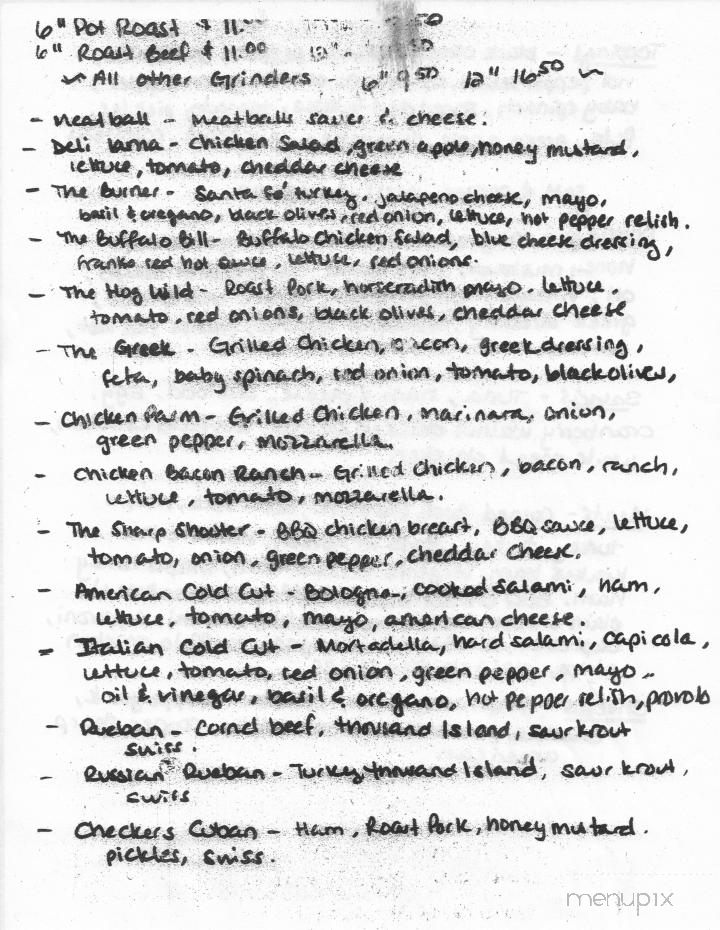 6" Pot Roast $ 11.
6" Roast Beef $ 11.00 12" - 50
~ All other Grinders - 6" 9.50 12" 16.50 ~
- Meatball - Meatballs sauce & cheese.
- Deli Lama - Chicken Salad, green apple, honey mustard,
lettuce, tomato, cheddar cheese
- The Burner - Santa Fé turkey, jalapeno cheese, mayo,
basil & oregano, black olives, red onion, lettuce, hot pepper relish.
- The Buffalo Bill - Buffalo Chicken Salad, blue cheese dressing,
franks red hot sauce, lettuce, red onions.
- The Hog Wild - Roast Pork, horseradish mayo, lettuce,
tomato, red onions, black olives, cheddar cheese
- The Greek - Grilled Chicken, bacon, greek dressing,
feta, baby spinach, red onion, tomato, black olives,
- Chicken Parm - Grilled Chicken, marinara, onion,
green pepper, mozzarella.
- Chicken Bacon Ranch - Grilled Chicken, bacon, ranch,
lettuce, tomato, mozzarella.
- The Sharp Shooter - BBQ chicken breast, BBQ sauce, lettuce,
tomato, onion, green pepper, cheddar cheese.
- American Cold Cut - Bologna, cooked salami, ham,
lettuce, tomato, mayo, american cheese.
- Italian Cold Cut - Mortadella, hard salami, capicola,
lettuce, tomato, red onion, green pepper, mayo,
oil & vinegar, basil & oregano, hot pepper relish, provolo
- Rueban - Corned beef, thousand Island, saurkrout
swiss.
- Russian Rueban - Turkey, thousand Island, saurkrout,
swiss
- Checkers Cuban - Ham, Roast Pork, honey mustard.
pickles, swiss.
menupix